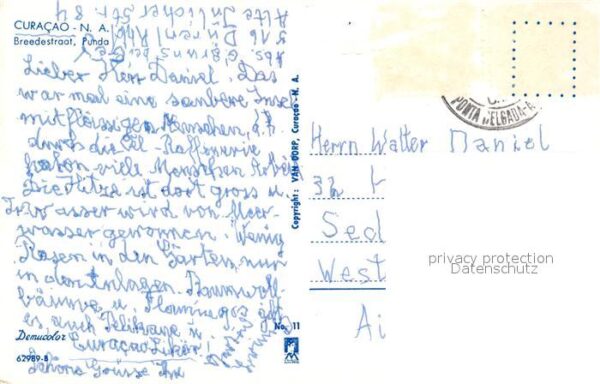 CURAÇAO - N. A.
Breedestraat, Punda
Abs.
516 Düren/Rhld
Alte Jülicher Str. 84
Lieber Herr Daniel. Das
war mal eine saubere Insel
mit fleissigen Menschen, d.h.
durch die Öl-Raffinerie
haben viele Menschen Arbeit
Die Hitze ist dort gross u.
Trinkwasser wird von Meer-
wasser gewonnen. Wenig
Rosen in den Gärten, nur
in den Anlagen. Baumwoll-
bäume u. Flamingos gibt
es, auch Pelikane u.
Curaçao Likör!
Schöne Grüsse Ihr
Demucolor
62989-B
No. 11
Copyright: VAN DORP, Curaçao - N. A.
PONTA DELGADA
Herrn Walter Daniel
32
Sed
West
Ai
privacy protection
Datenschutz